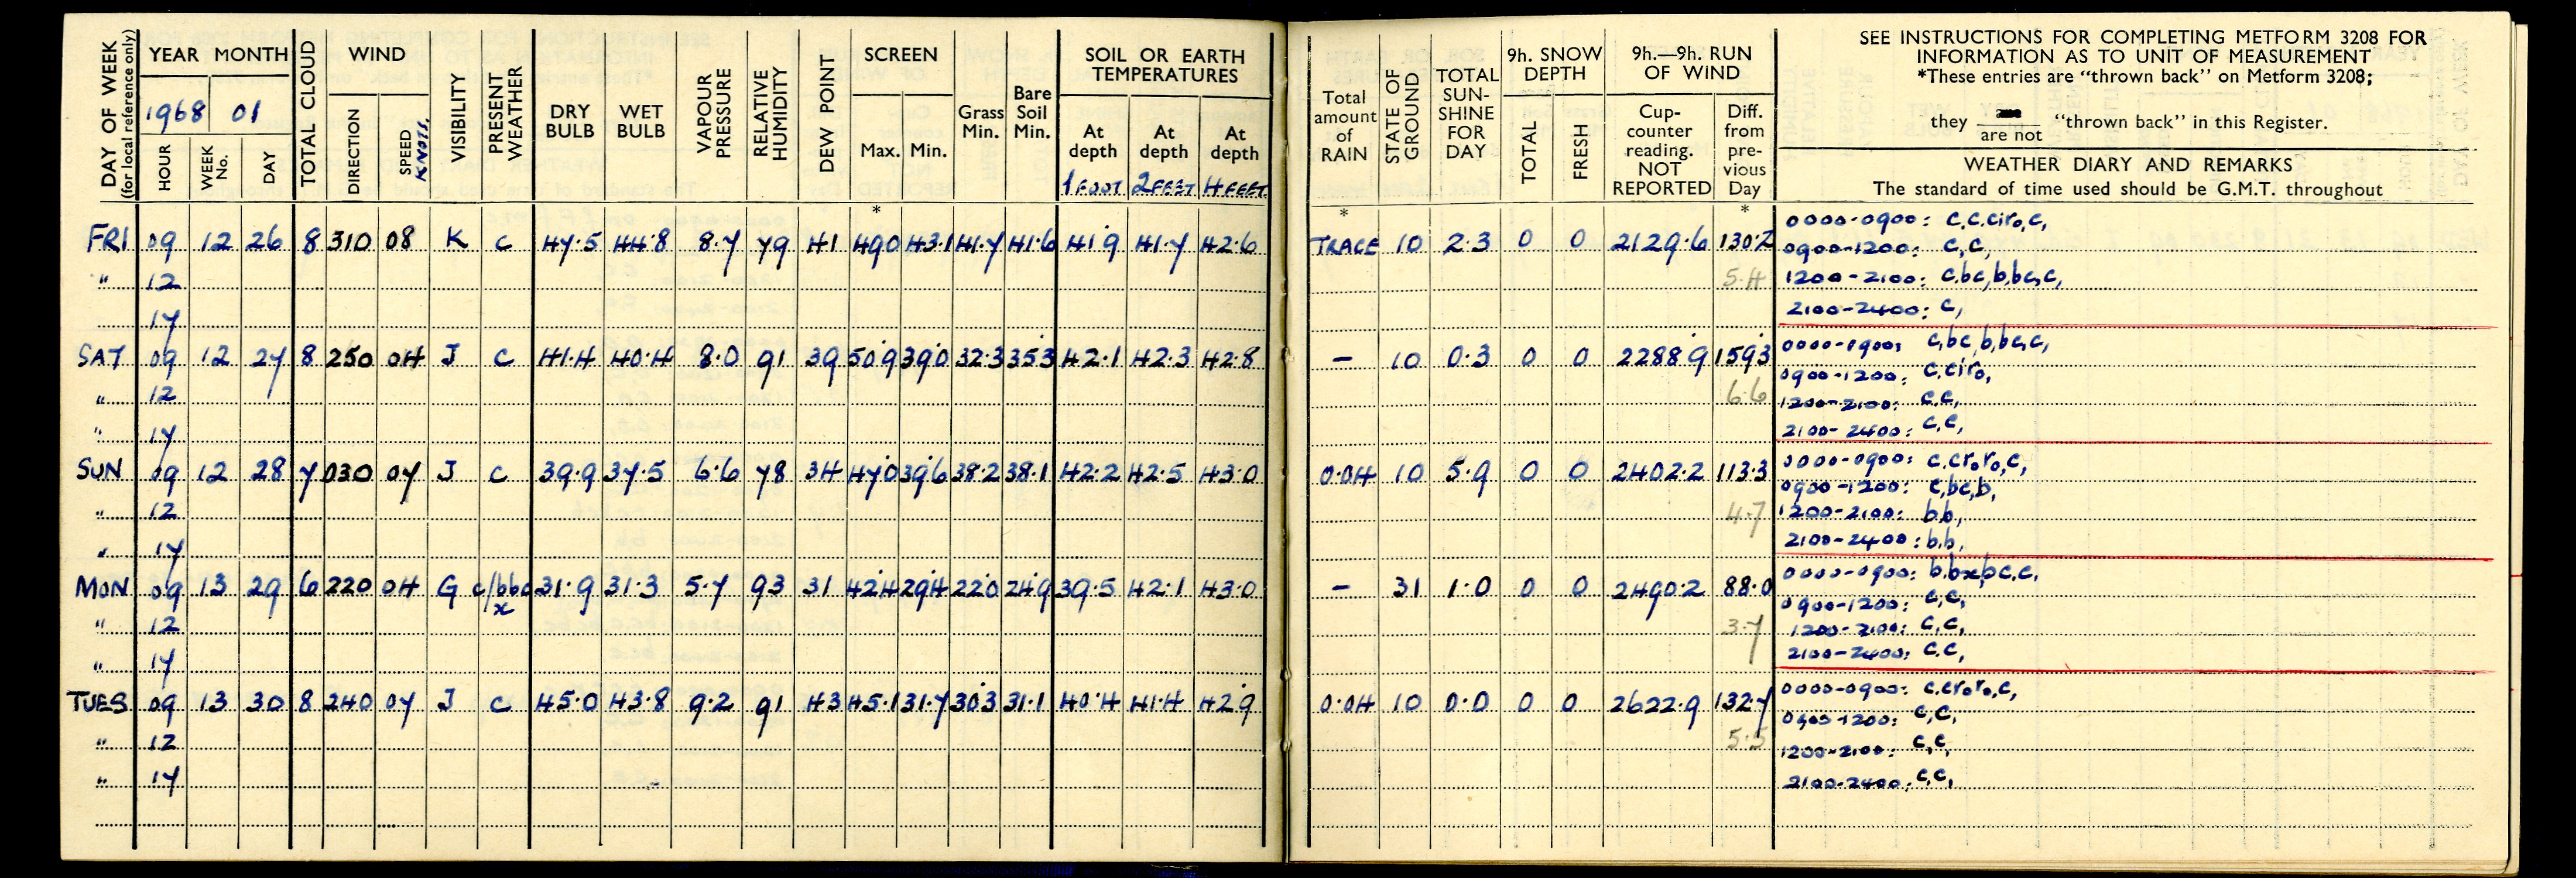 DAY OF WEEK
(for local reference only)
YEAR MONTH
1968 01
HOUR
WEEK No.
DAY
TOTAL CLOUD
WIND
DIRECTION
SPEED
KNOTS.
VISIBILITY
PRESENT WEATHER
DRY BULB
WET BULB
VAPOUR PRESSURE
RELATIVE HUMIDITY
DEW POINT
SCREEN
Max. Min.
*
Grass Min.
Bare Soil Min.
SOIL OR EARTH
TEMPERATURES
At depth At depth At depth
1 FOOT 2 FEET 4 FEET
Total amount of RAIN
*
STATE OF GROUND
TOTAL SUN-SHINE FOR DAY
9h. SNOW DEPTH
TOTAL
FRESH
9h.—9h. RUN OF WIND
Cup-counter reading. NOT REPORTED
Diff. from pre-vious Day
*
SEE INSTRUCTIONS FOR COMPLETING METFORM 3208 FOR
INFORMATION AS TO UNIT OF MEASUREMENT
*These entries are "thrown back" on Metform 3208;
they are / are not "thrown back" in this Register.
WEATHER DIARY AND REMARKS
The standard of time used should be G.M.T. throughout
FRI 09 12 26 8 310 08 K c 47.5 44.8 8.7 79 41 49.0 43.1 41.7 41.6 41.9 41.7 42.6 TRACE 10 2.3 0 0 2129.6 130.2
0000-0900: c,c,ciro,c,
0900-1200: c,c,
" 12 5.4 1200-2100: c,bc,b,bc,c,
" 17 2100-2400: c,
SAT 09 12 27 8 250 04 J c 41.4 40.4 8.0 91 39 50.9 39.0 32.3 35.3 42.1 42.3 42.8 – 10 0.3 0 0 2288.9 159.3
0000-0900: c,bc,b,bc,c,
0900-1200: c.ciro,
" 12 6.6 1200-2100: c.c,
" 17 2100-2400: c,c,
SUN 09 12 28 7 030 07 J c 39.9 37.5 6.6 78 34 47.0 39.6 38.2 38.1 42.2 42.5 43.0 0.04 10 5.9 0 0 2402.2 113.3
0000-0900: c.croro,c,
0900-1200: c,bc,b,
" 12 4.7 1200-2100: b.b,
" 17 2100-2400: b.b,
MON 09 13 29 6 220 04 G c/bbc x 31.9 31.3 5.7 93 31 42.4 29.4 22.0 24.9 39.5 42.1 43.0 – 31 1.0 0 0 2490.2 88.0
0000-0900: b.bx,bc,c,
0900-1200: c,c,
" 12 3.7 1200-2100: c,c,
" 17 2100-2400: c.c,
TUES 09 13 30 8 240 07 J c 45.0 43.8 9.2 91 43 45.1 31.7 30.3 31.1 40.4 41.4 42.9 0.04 10 0.0 0 0 2622.9 132.7
0000-0900: c.croro,c,
0900-1200: c,c,
" 12 5.5 1200-2100: c,c,
" 17 2100-2400: c,c,